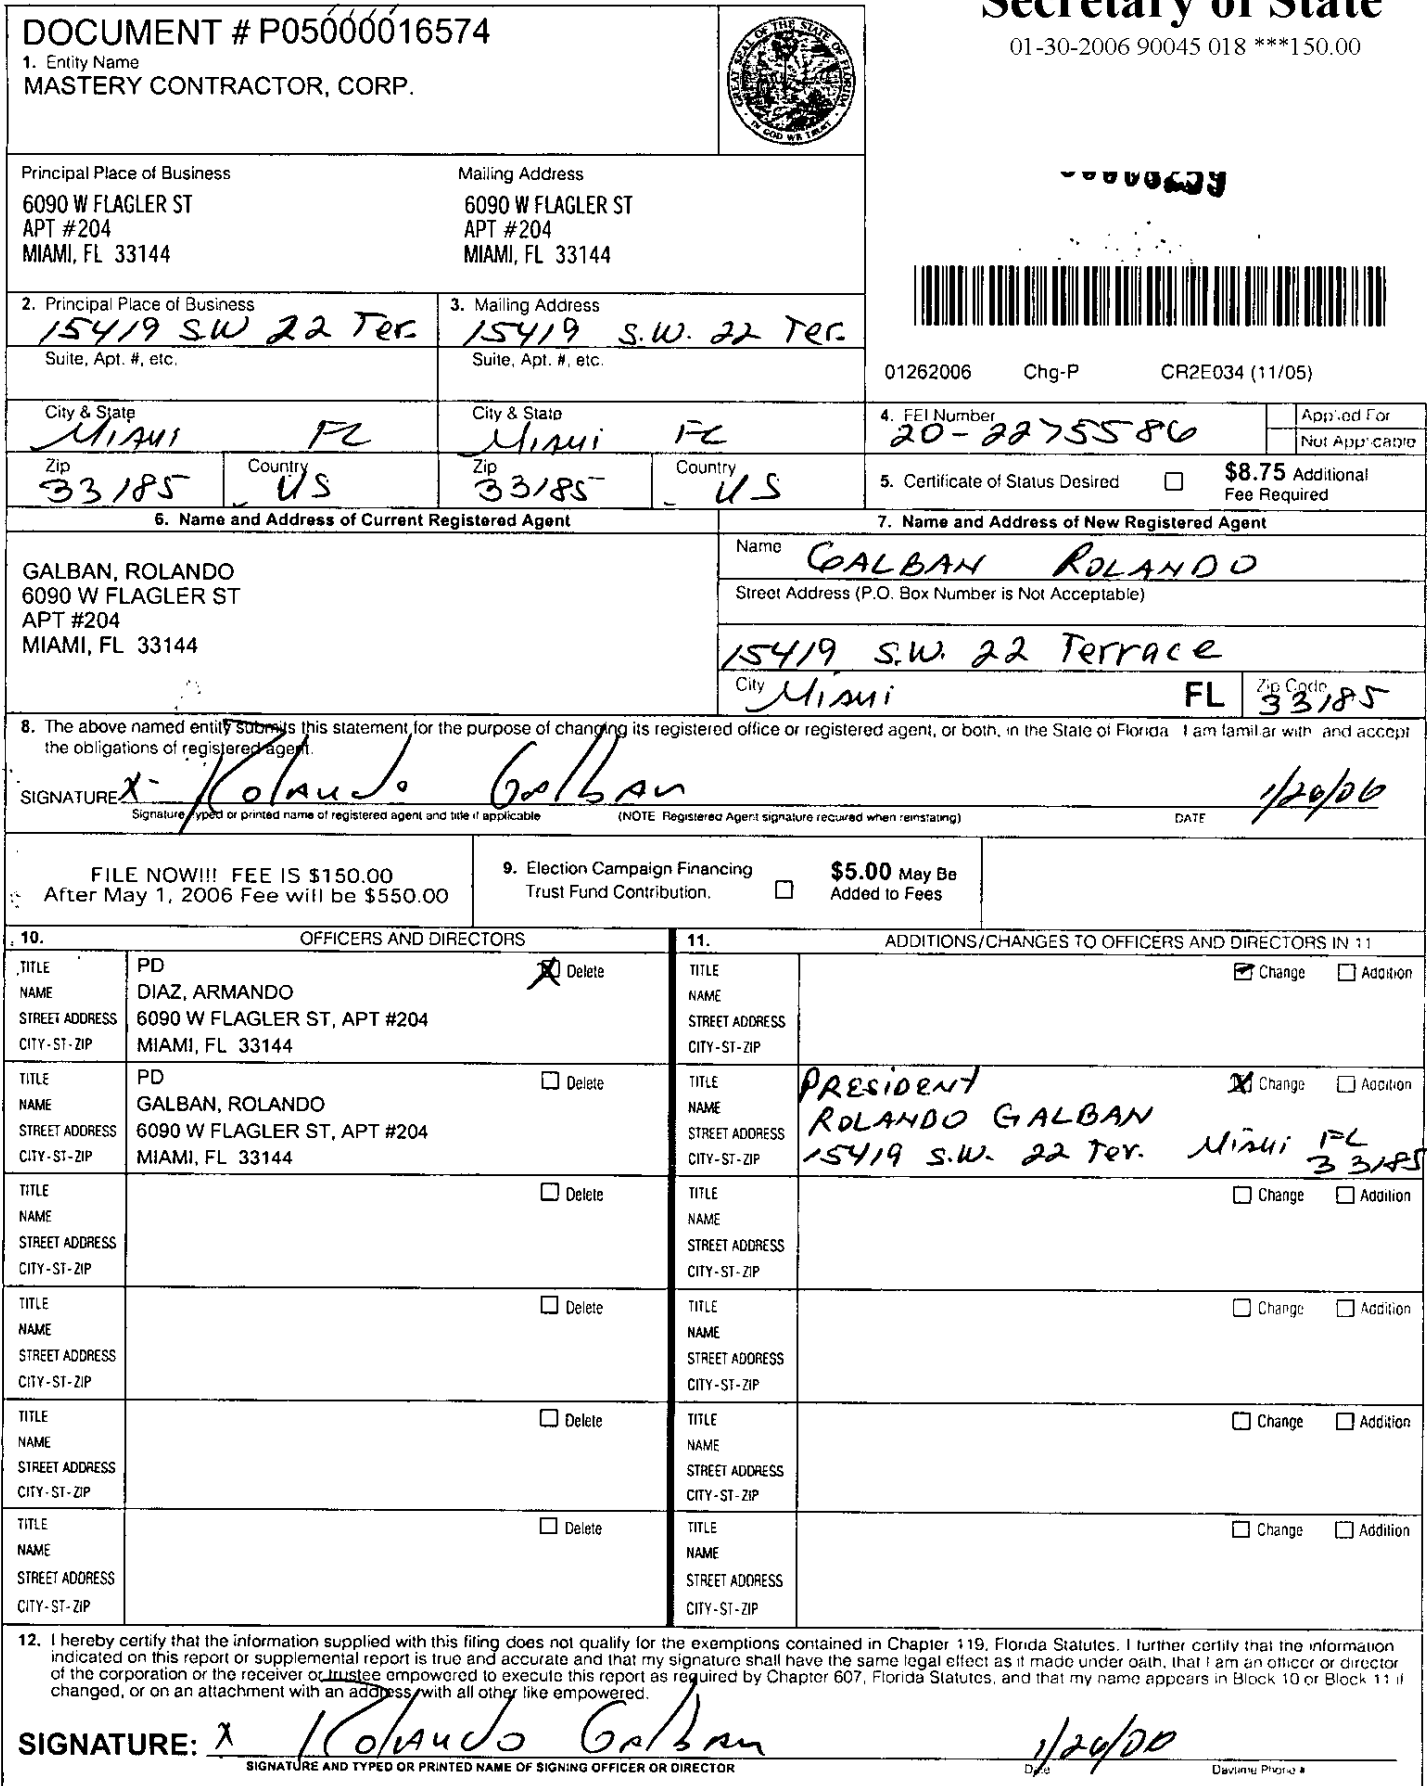 Secretary of State
01-30-2006 90045 018 ***150.00
DOCUMENT # P05000016574
1. Entity Name
MASTERY CONTRACTOR, CORP.
Principal Place of Business
6090 W FLAGLER ST
APT #204
MIAMI, FL 33144
Mailing Address
6090 W FLAGLER ST
APT #204
MIAMI, FL 33144
2. Principal Place of Business
15419 S.W 22 Ter.
Suite, Apt. #, etc.
City & State
Miami FL
Zip
33185
Country
US
3. Mailing Address
15419 S.W. 22 Ter.
Suite, Apt. #, etc.
City & State
Miami FL
Zip
33185
Country
US
01262006 Chg-P CR2E034 (11/05)
4. FEI Number
20-2275586
Applied For
Not Applicable
5. Certificate of Status Desired
$8.75 Additional
Fee Required
6. Name and Address of Current Registered Agent
GALBAN, ROLANDO
6090 W FLAGLER ST
APT #204
MIAMI, FL 33144
7. Name and Address of New Registered Agent
Name GALBAN ROLANDO
Street Address (P.O. Box Number is Not Acceptable)
15419 S.W. 22 Terrace
City Miami FL Zip Code 33185
8. The above named entity submits this statement for the purpose of changing its registered office or registered agent, or both, in the State of Florida I am familiar with and accept
the obligations of registered agent.
SIGNATURE X- Rolando Galban 1/26/06
Signature, typed or printed name of registered agent and title if applicable (NOTE Registered Agent signature required when reinstating) DATE
FILE NOW!!! FEE IS $150.00
After May 1, 2006 Fee will be $550.00
9. Election Campaign Financing
Trust Fund Contribution.
$5.00 May Be
Added to Fees
10. OFFICERS AND DIRECTORS
TITLE PD X Delete
NAME DIAZ, ARMANDO
STREET ADDRESS 6090 W FLAGLER ST, APT #204
CITY-ST-ZIP MIAMI, FL 33144
TITLE PD Delete
NAME GALBAN, ROLANDO
STREET ADDRESS 6090 W FLAGLER ST, APT #204
CITY-ST-ZIP MIAMI, FL 33144
TITLE Delete
NAME
STREET ADDRESS
CITY-ST-ZIP
TITLE Delete
NAME
STREET ADDRESS
CITY-ST-ZIP
TITLE Delete
NAME
STREET ADDRESS
CITY-ST-ZIP
TITLE Delete
NAME
STREET ADDRESS
CITY-ST-ZIP
11. ADDITIONS/CHANGES TO OFFICERS AND DIRECTORS IN 11
TITLE Change Addition
NAME
STREET ADDRESS
CITY-ST-ZIP
TITLE PRESIDENT X Change Addition
NAME ROLANDO GALBAN
STREET ADDRESS 15419 S.W. 22 Ter. Miami FL
CITY-ST-ZIP 33185
TITLE Change Addition
NAME
STREET ADDRESS
CITY-ST-ZIP
TITLE Change Addition
NAME
STREET ADDRESS
CITY-ST-ZIP
TITLE Change Addition
NAME
STREET ADDRESS
CITY-ST-ZIP
TITLE Change Addition
NAME
STREET ADDRESS
CITY-ST-ZIP
12. I hereby certify that the information supplied with this filing does not qualify for the exemptions contained in Chapter 119, Florida Statutes. I further certify that the information
indicated on this report or supplemental report is true and accurate and that my signature shall have the same legal effect as if made under oath, that I am an officer or director
of the corporation or the receiver or trustee empowered to execute this report as required by Chapter 607, Florida Statutes, and that my name appears in Block 10 or Block 11 if
changed, or on an attachment with an address, with all other like empowered.
SIGNATURE: X Rolando Galban 1/26/00
SIGNATURE AND TYPED OR PRINTED NAME OF SIGNING OFFICER OR DIRECTOR Date Daytime Phone #